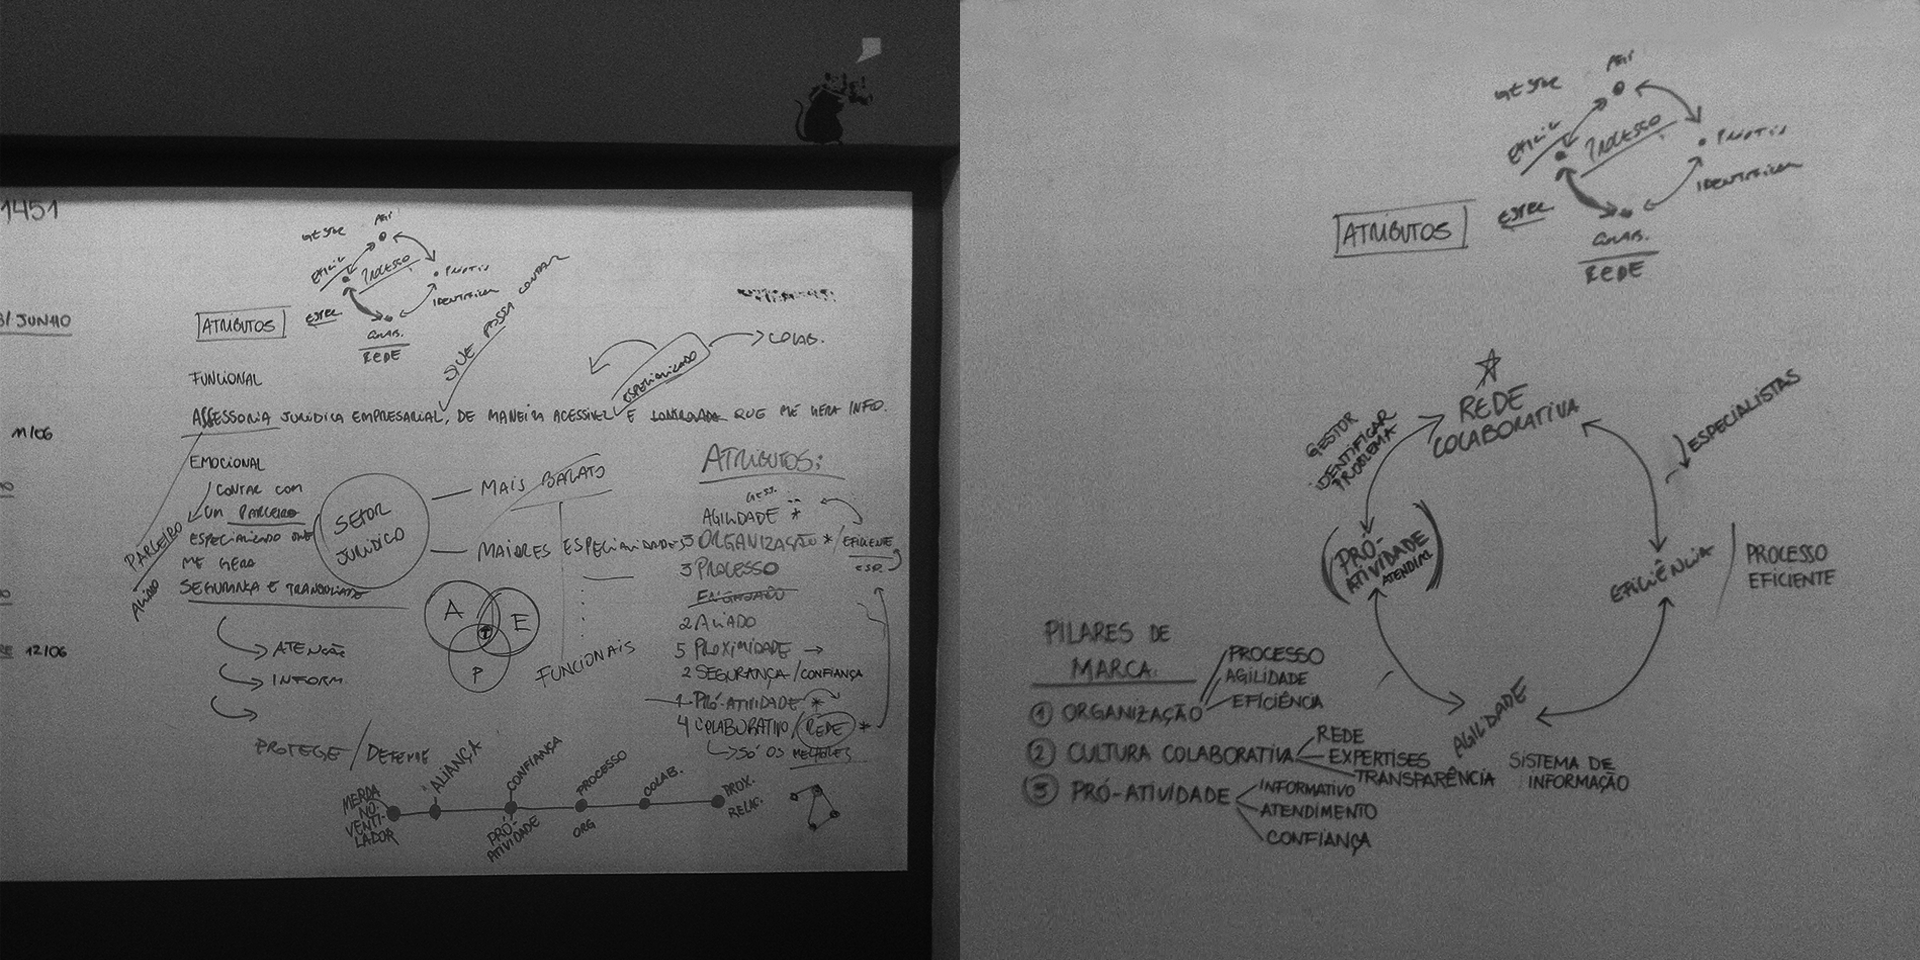 1451
JUNHO
11/06
12/06
PROCESSO
ATRIBUTOS
REDE
QUE POSSA CONTAR
FUNCIONAL
ESPECIALIZADO
COLAB.
ASSESSORIA JURÍDICA EMPRESARIAL, DE MANEIRA ACESSÍVEL E QUE ME GERA INFO.
EMOCIONAL
CONTAR COM
UM PARCEIRO
ESPECIALIZADO QUE
ME GERA
SEGURANÇA E
PARCEIRO
ALIADO
SETOR
JURÍDICO
MAIS BARATO
MAIORES ESPECIALIDADES
A
E
P
FUNCIONAIS
ATENÇÃO
INFORM.
PROTEGE / DEFENDE
ATRIBUTOS:
AGILIDADE *
3 ORGANIZAÇÃO * / EFICIENTE
ESP.
3 PROCESSO
ENGAJADO
2 ALIADO
5 PROXIMIDADE
2 SEGURANÇA / CONFIANÇA
1 PRÓ-ATIVIDADE *
4 COLABORATIVO / REDE *
SÓ OS MELHORES
MERDA
NO
VENTI-
LADOR
ALIANÇA
CONFIANÇA
PRÓ-
ATIVIDADE
PROCESSO
ORG
COLAB.
PROX.
RELAC.
PROCESSO
ATRIBUTOS
REDE
REDE
COLABORATIVA
GESTOR
IDENTIFICAR
PROBLEMA
ESPECIALISTAS
(PRÓ-
ATIVIDADE
EFICIÊNCIA
PROCESSO
EFICIENTE
AGILIDADE
SISTEMA DE
INFORMAÇÃO
PILARES DE
MARCA:
1 ORGANIZAÇÃO
PROCESSO
AGILIDADE
EFICIÊNCIA
2 CULTURA COLABORATIVA
REDE
EXPERTISES
TRANSPARÊNCIA
3 PRÓ-ATIVIDADE
INFORMATIVO
ATENDIMENTO
CONFIANÇA